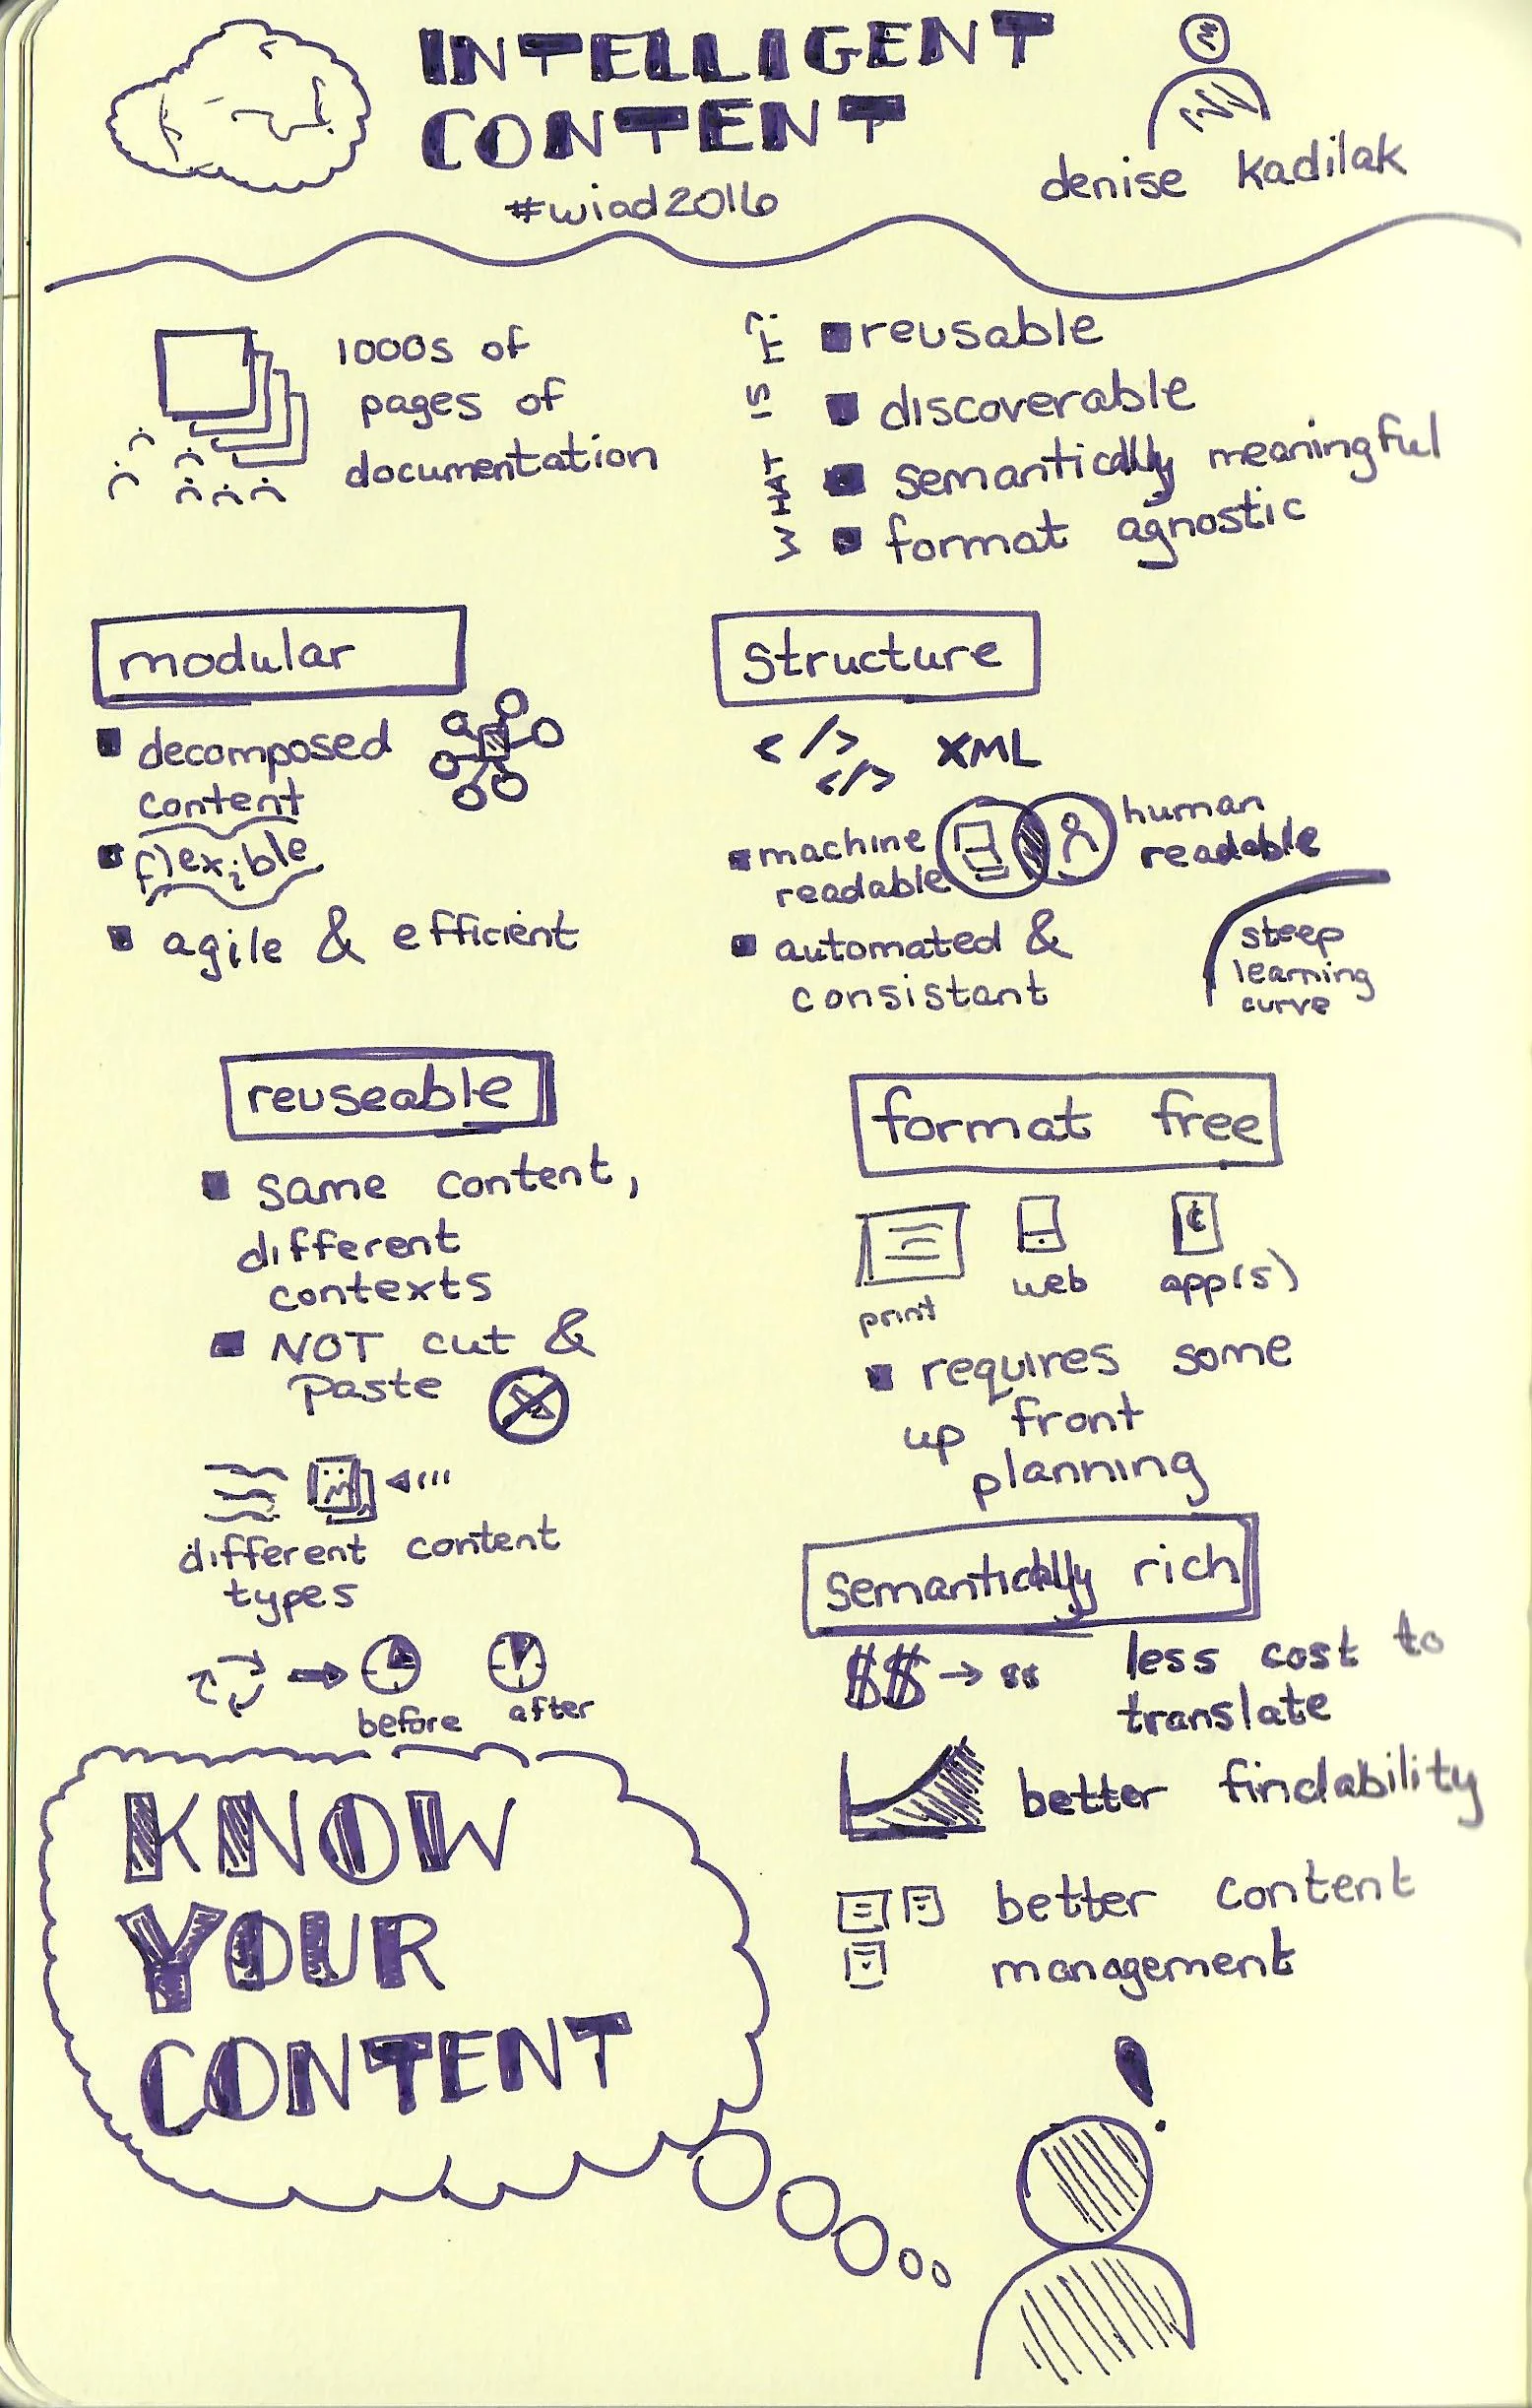 INTELLIGENT
CONTENT
#wiad2016
denise kadilak
1000s of
pages of
documentation
WHAT IS IT?
reusable
discoverable
semantically meaningful
format agnostic
modular
decomposed
content
flexible
agile & efficient
structure
</>
</>
XML
machine
readable
human
readable
automated &
consistant
steep
learning
curve
reuseable
same content,
different
contexts
NOT cut &
paste
different content
types
before
after
format free
print
web
app(s)
requires some
up front
planning
semantically rich
$$ → $$
less cost to
translate
better findability
better content
management
KNOW
YOUR
CONTENT
!